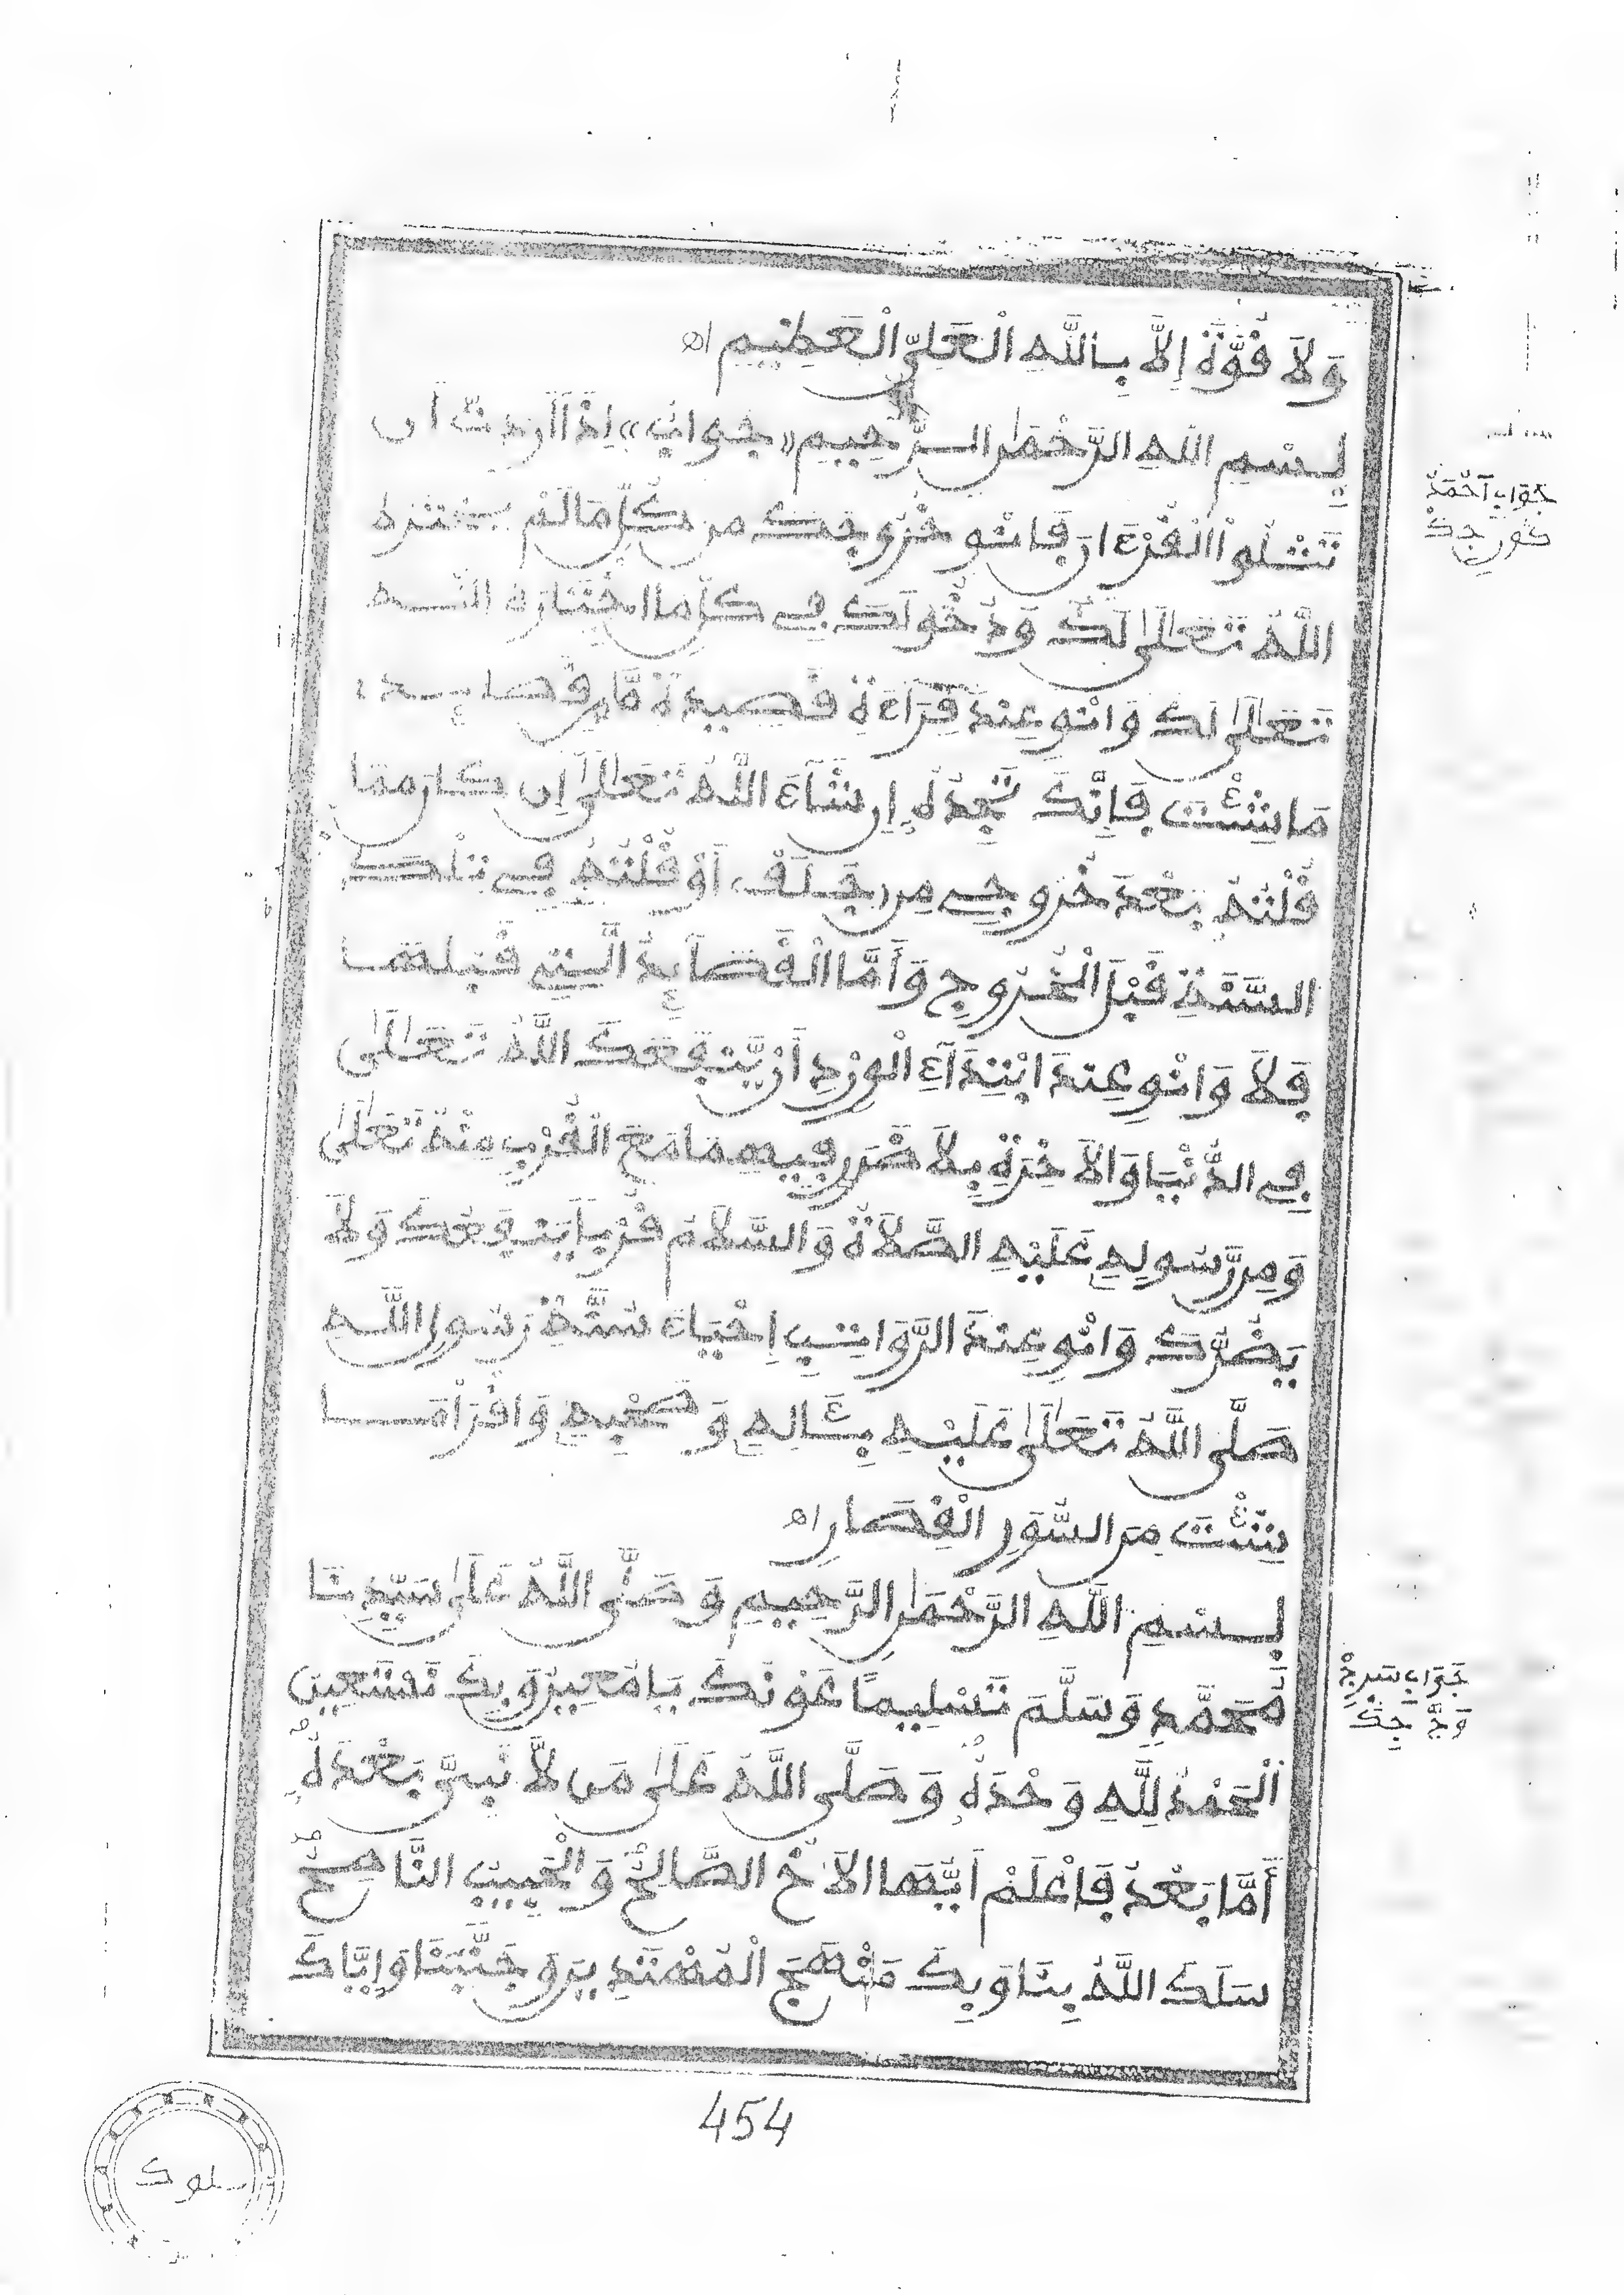 وَلَا قُوَّةَ إِلَّا بِاللَّهِ الْعَلِيِّ الْعَظِيمِ اهـ
بِسْمِ اللَّهِ الرَّحْمَٰنِ الرَّحِيمِ «جواب» إِذَا أَرَدتَّ أَن
جَوَاب أَحْمَدُ
تَتْلُوا الْقُرْءَانَ فَانْوِ خُرُوجَكَ مِن كُلِّ مَا لَمْ يَخْتَرْهُ
اللَّهُ تَعَالَىٰ لَكَ وَدُخُولَكَ فِي كُلِّ مَا اخْتَارَهُ اللَّه
تَعَالَىٰ لَكَ وَانْوِ عِنْدَ قِرَاءَةِ قَصِيدَةٍ مِّن قصايد
مَا شِئْتَ فَإِنَّكَ تَجِدُهُ إِن شَاءَ اللَّهُ تَعَالَىٰ إِن كان مما
قُلْتُهُ بَعْدَ خُرُوجِي مِن أَوْ قُلْتُهُ فِي تِلْكَ
السَّنَةِ قَبْلَ الْخُرُوجِ وَأَمَّا الْقَصَائِدُ الَّتِي قَبْلَهَا
فَلَا وَانْوِ عِنْدَ ابْتِدَاءِ الْوِرْدِ أَن يَّنفَعَكَ اللَّهُ تَعَالَىٰ
فِي الدُّنْيَا وَالْآخِرَةِ بِلَا ضَرَرٍ فِيهِمَا مَعَ الْقُرْبِ مِنْهُ تَعَالَىٰ
وَمِن رَّسُولِهِ عَلَيْهِ الصَّلَاةُ وَالسَّلَامُ قُرْبًا يَنفَعُكَ وَلَا
يَضُرُّكَ وَانْوِ عِنْدَ الرَّوَاتِبِ إِحْيَاءَ سُنَّةِ رَسُولِ اللَّهِ
صَلَّى اللَّهُ تَعَالَىٰ عَلَيْهِ بِـَٔالِهِ وَصَحْبِهِ وَاقْرَأْ مَا
شِئْتَ مِنَ السُّوَرِ الْقِصَارِ اهـ
بِسْمِ اللَّهِ الرَّحْمَٰنِ الرَّحِيمِ وَصَلَّى اللَّهُ عَلَىٰ سَيِّدِنَا
مُحَمَّدٍ وَسَلَّمَ تَسْلِيمًا عَوْنَكَ يَا مُعِينُ وَبِكَ نَسْتَعِينُ
جَوَابِ سَرِجْ
اَلْحَمْدُ لِلَّهِ وَحْدَهُ وَصَلَّى اللَّهُ عَلَىٰ مَن لَّا نَبِيَّ بَعْدَهُ
أَمَّا بَعْدُ فَاعْلَمْ أَيُّهَا الْأَخُ الصَّالِحُ وَالْحَبِيبُ النَّاصِحُ
سَلَكَ اللَّهُ بِنَا وَبِكَ مَنْهَجَ الْمُهْتَدِينَ وَجَنَّبَنَا وَإِيَّاكَ
454